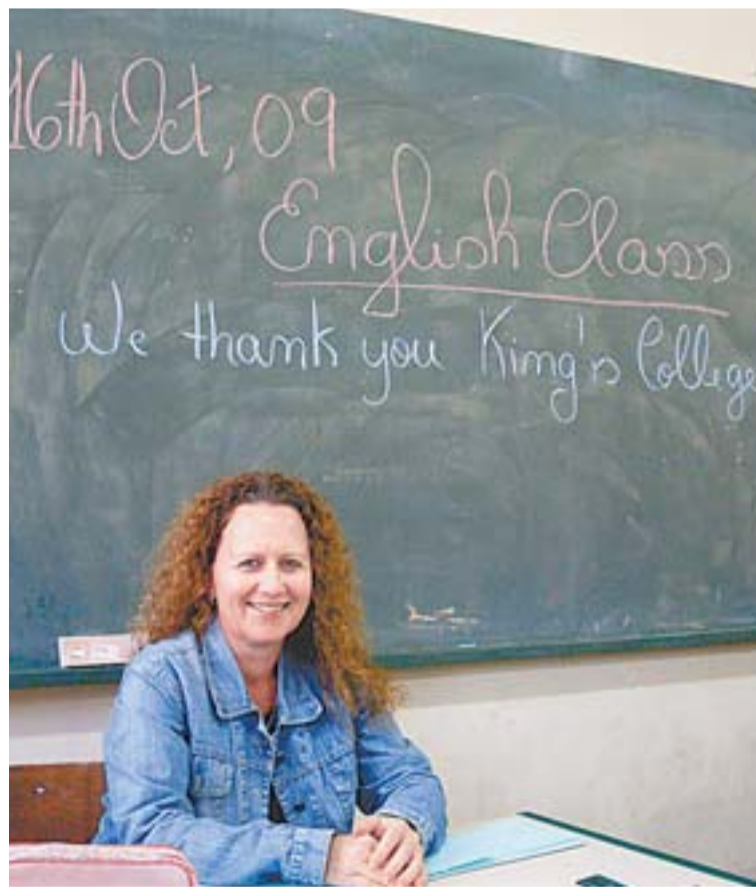 16th Oct, 09
English Class
We thank you King's College